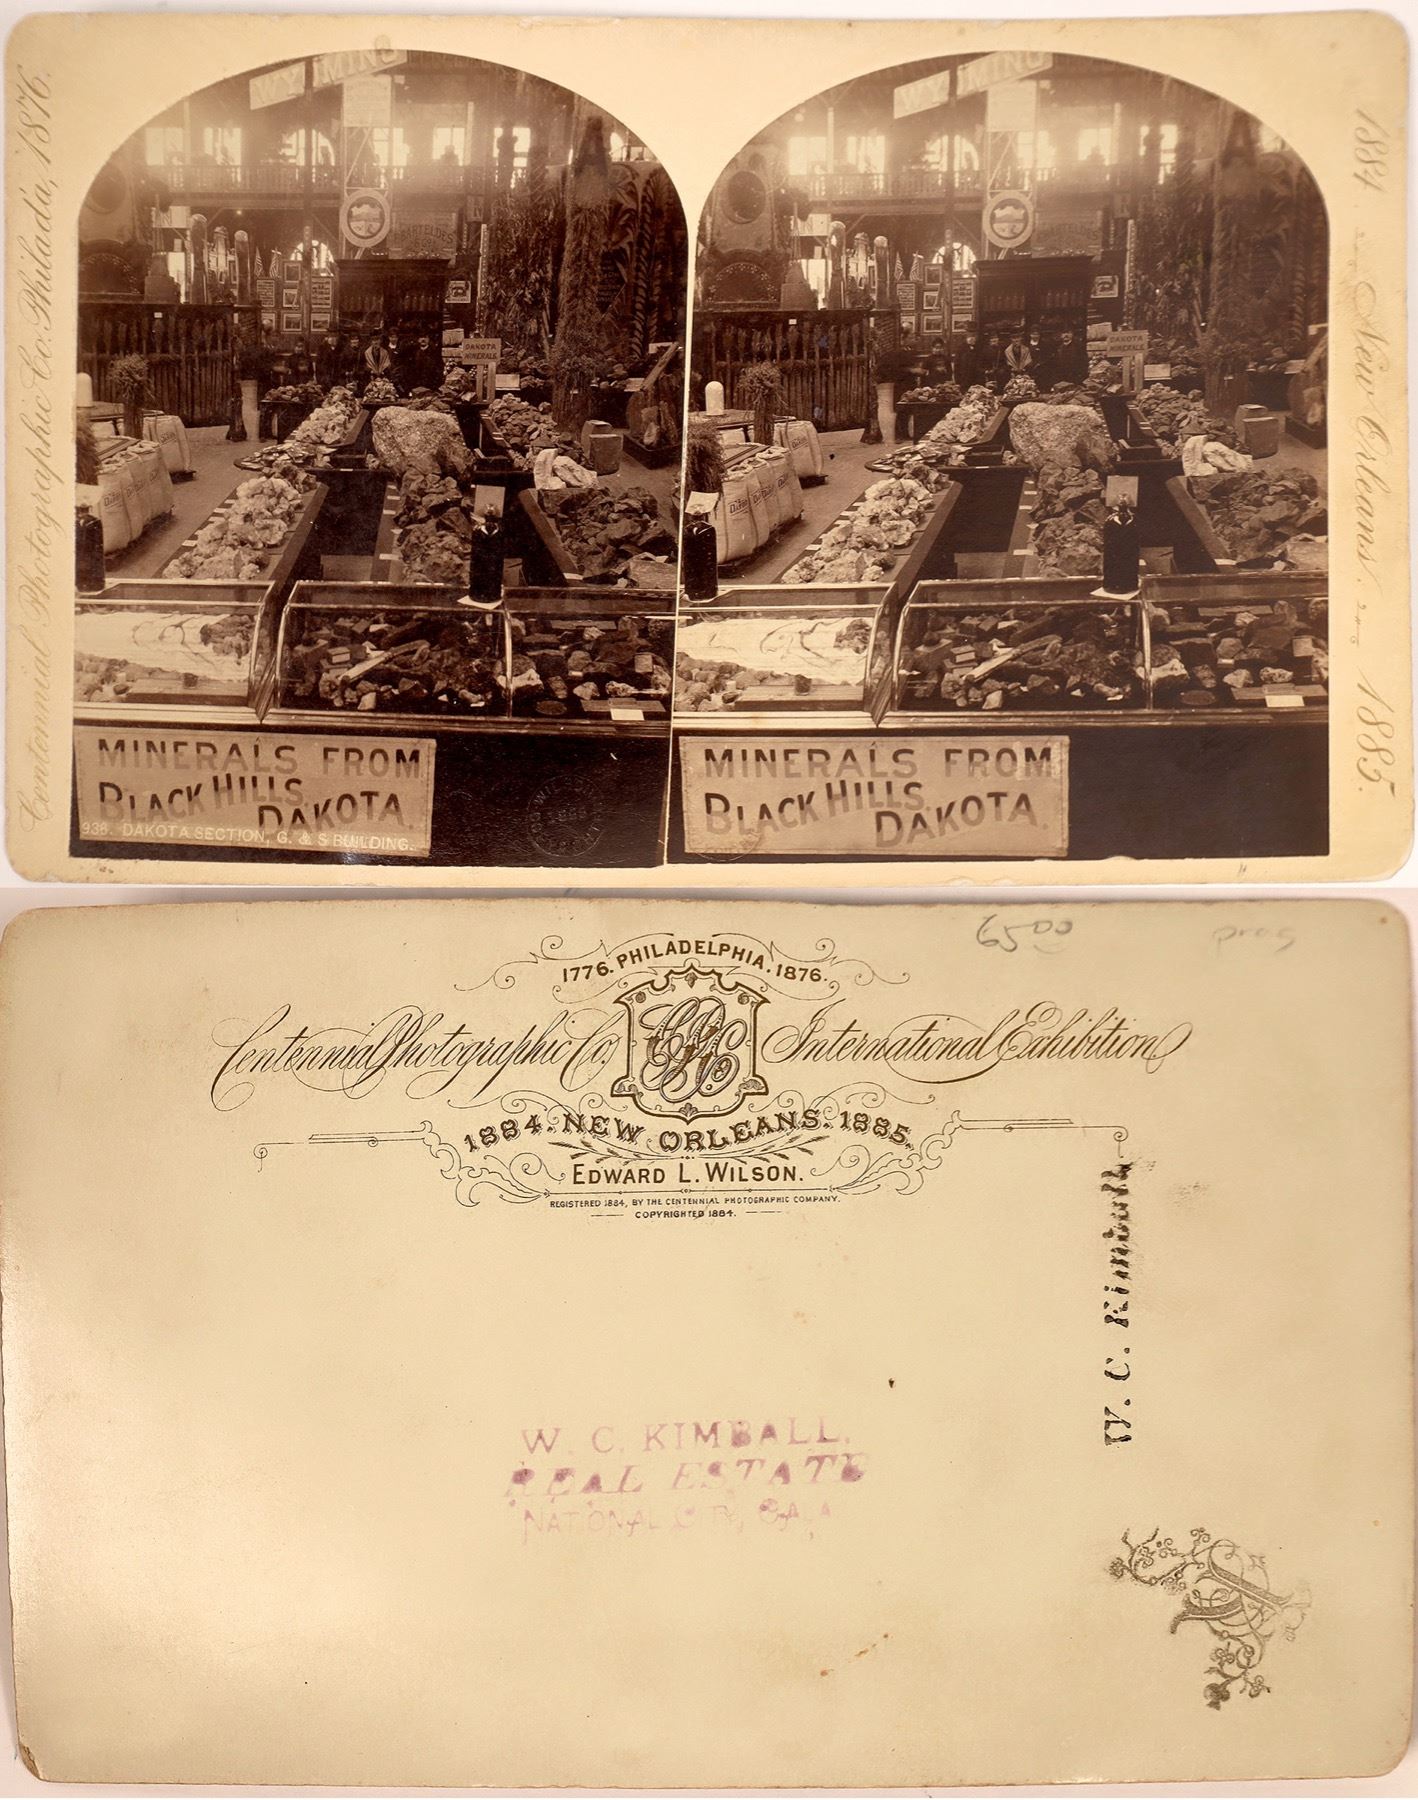 Centennial Photographic Co. Philada, 1876.
WYOMING
BARTELDES
DAKOTA
MINERALS.
MINERALS FROM
BLACK HILLS,
DAKOTA.
938. DAKOTA SECTION, G. & S BUILDING.
WYOMING
BARTELDES
DAKOTA
MINERALS.
MINERALS FROM
BLACK HILLS,
DAKOTA.
1884. New Orleans. 1885.
6500
1776. PHILADELPHIA. 1876.
Centennial Photographic Co. International Exhibition
CPC
1884. NEW ORLEANS. 1885.
EDWARD L. WILSON.
REGISTERED 1884, BY THE CENTENNIAL PHOTOGRAPHIC COMPANY.
COPYRIGHTED 1884.
W. C. Kimball
W. C. KIMBALL,
REAL ESTATE
NATIONAL CITY, CALA